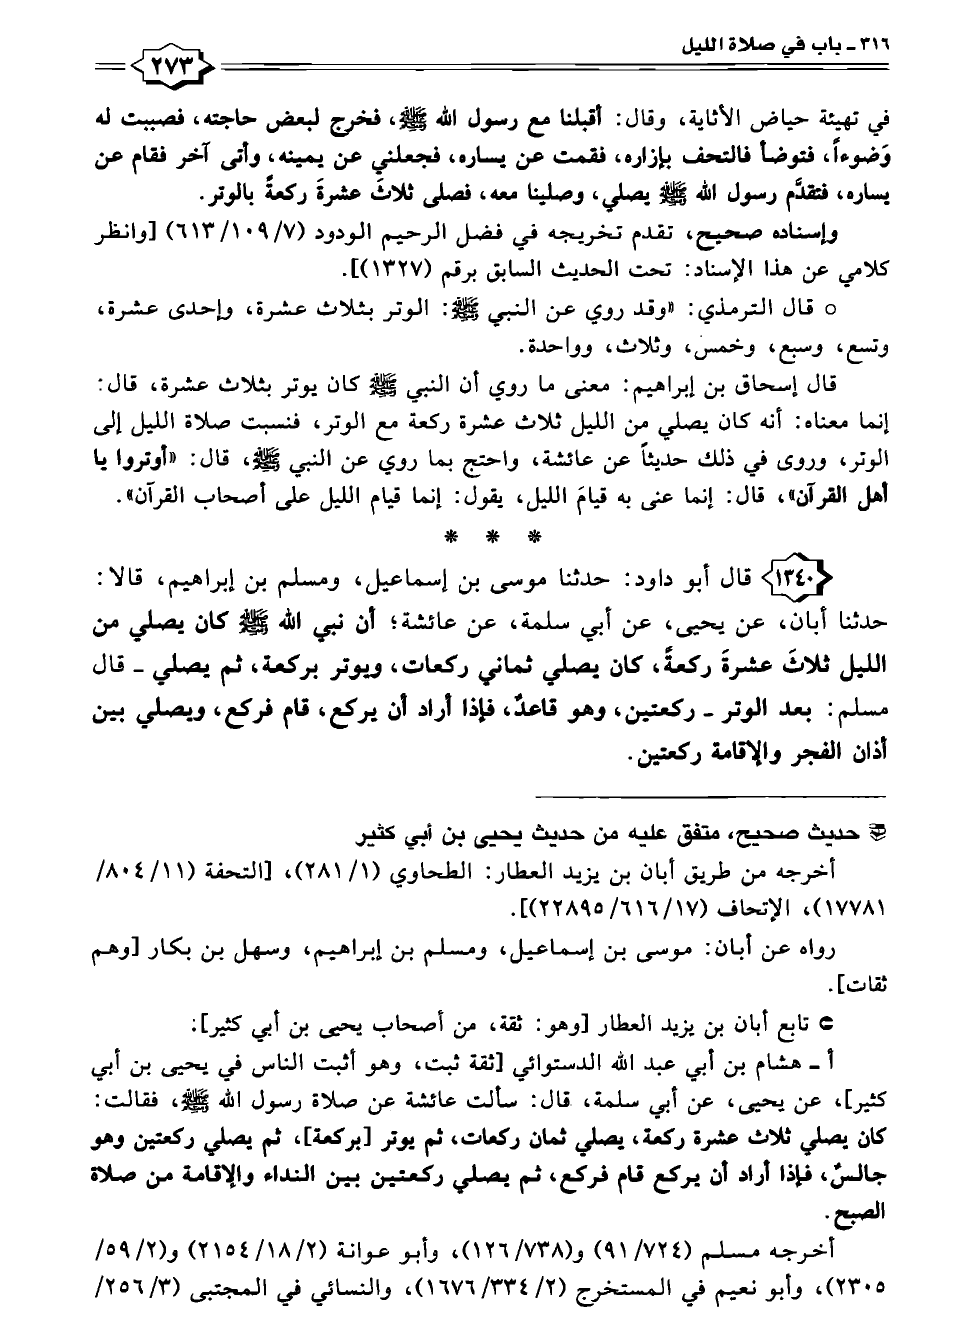 ٣١٦ - باب في صلاة الليل
٢٧٣
في تهيئة حياض الأثاية، وقال: أقبلنا مع رسول الله ﷺ، فخرج لبعض حاجته، فصببت له
وَضوءاً، فتوضأ فالتحف بإزاره، فقمت عن يساره، فجعلني عن يمينه، وأتى آخر فقام عن
يساره، فتقدَّم رسول الله ﷺ يصلي، وصلينا معه، فصلى ثلاثَ عشرةَ ركعةً بالوتر.
وإسناده صحيح، تقدم تخريجه في فضل الرحيم الودود (٧/ ١٠٩/ ٦١٣) [وانظر
كلامي عن هذا الإسناد: تحت الحديث السابق برقم (١٣٢٧)].
○ قال الترمذي: «وقد روي عن النبي ﷺ: الوتر بثلاث عشرة، وإحدى عشرة،
وتسع، وسبع، وخمس، وثلاث، وواحدة.
قال إسحاق بن إبراهيم: معنى ما روي أن النبي ﷺ كان يوتر بثلاث عشرة، قال:
إنما معناه: أنه كان يصلي من الليل ثلاث عشرة ركعة مع الوتر، فنسبت صلاة الليل إلى
الوتر، وروى في ذلك حديثاً عن عائشة، واحتج بما روي عن النبي ﷺ، قال: «أوتروا يا
أهل القرآن»، قال: إنما عنى به قيامَ الليل، يقول: إنما قيام الليل على أصحاب القرآن».
* * *
١٣٤٠ قال أبو داود: حدثنا موسى بن إسماعيل، ومسلم بن إبراهيم، قالا:
حدثنا أبان، عن يحيى، عن أبي سلمة، عن عائشة؛ أن نبي الله ﷺ كان يصلي من
الليل ثلاثَ عشرةَ ركعةً، كان يصلي ثماني ركعات، ويوتر بركعة، ثم يصلي - قال
مسلم: بعد الوتر - ركعتين، وهو قاعدٌ، فإذا أراد أن يركع، قام فركع، ويصلي بين
أذان الفجر والإقامة ركعتين.
حديث صحيح، متفق عليه من حديث يحيى بن أبي كثير
أخرجه من طريق أبان بن يزيد العطار: الطحاوي (١/ ٢٨١)، [التحفة (١١/ ٨٠٤/
١٧٧٨١)، الإتحاف (١٧/ ٦١٦/ ٢٢٨٩٥)].
رواه عن أبان: موسى بن إسماعيل، ومسلم بن إبراهيم، وسهل بن بكار [وهم
ثقات].
تابع أبان بن يزيد العطار [وهو: ثقة، من أصحاب يحيى بن أبي كثير]:
أ - هشام بن أبي عبد الله الدستوائي [ثقة ثبت، وهو أثبت الناس في يحيى بن أبي
كثير]، عن يحيى، عن أبي سلمة، قال: سألت عائشة عن صلاة رسول الله ﷺ، فقالت:
كان يصلي ثلاث عشرة ركعة، يصلي ثمان ركعات، ثم يوتر [بركعة]، ثم يصلي ركعتين وهو
جالسٌ، فإذا أراد أن يركع قام فركع، ثم يصلي ركعتين بين النداء والإقامة من صلاة
الصبح.
أخرجه مسلم (٧٢٤/ ٩١) و(٧٣٨/ ١٢٦)، وأبو عوانة (٢/ ١٨/ ٢١٥٤) و(٢/ ٥٩/
٢٣٠٥)، وأبو نعيم في المستخرج (٢/ ٣٣٤/ ١٦٧٦)، والنسائي في المجتبى (٣/ ٢٥٦/